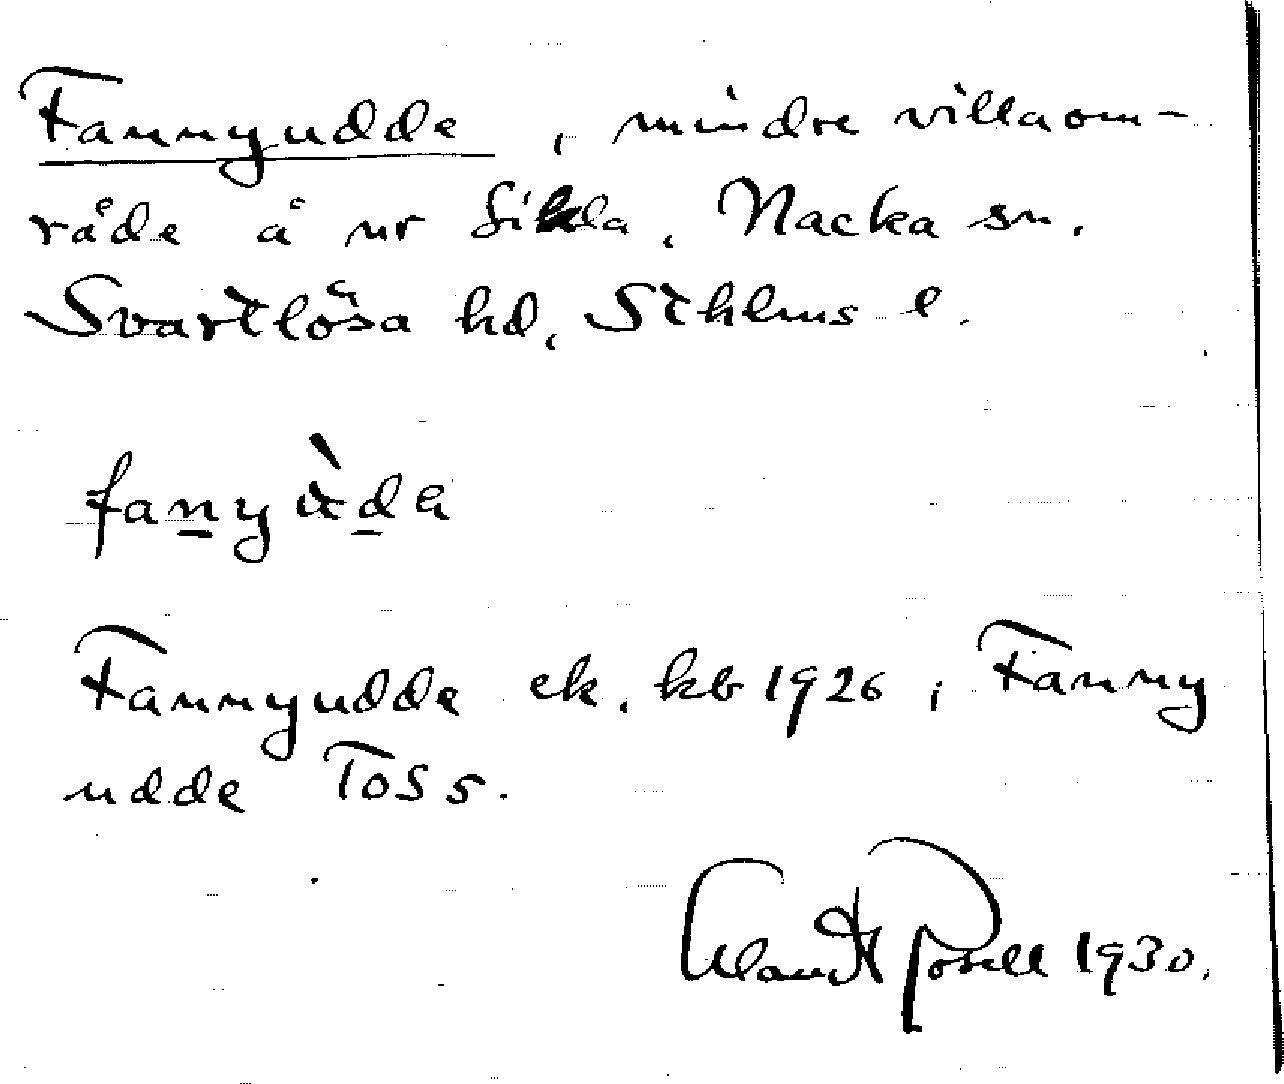 Fannyudde, mindre villaom-
råde å nr Sikla, Nacka sn,
Svartlösa hd, Sthlms l.
Fannyudde ek. kb 1926; Fanny
udde ToS 5.
1930.